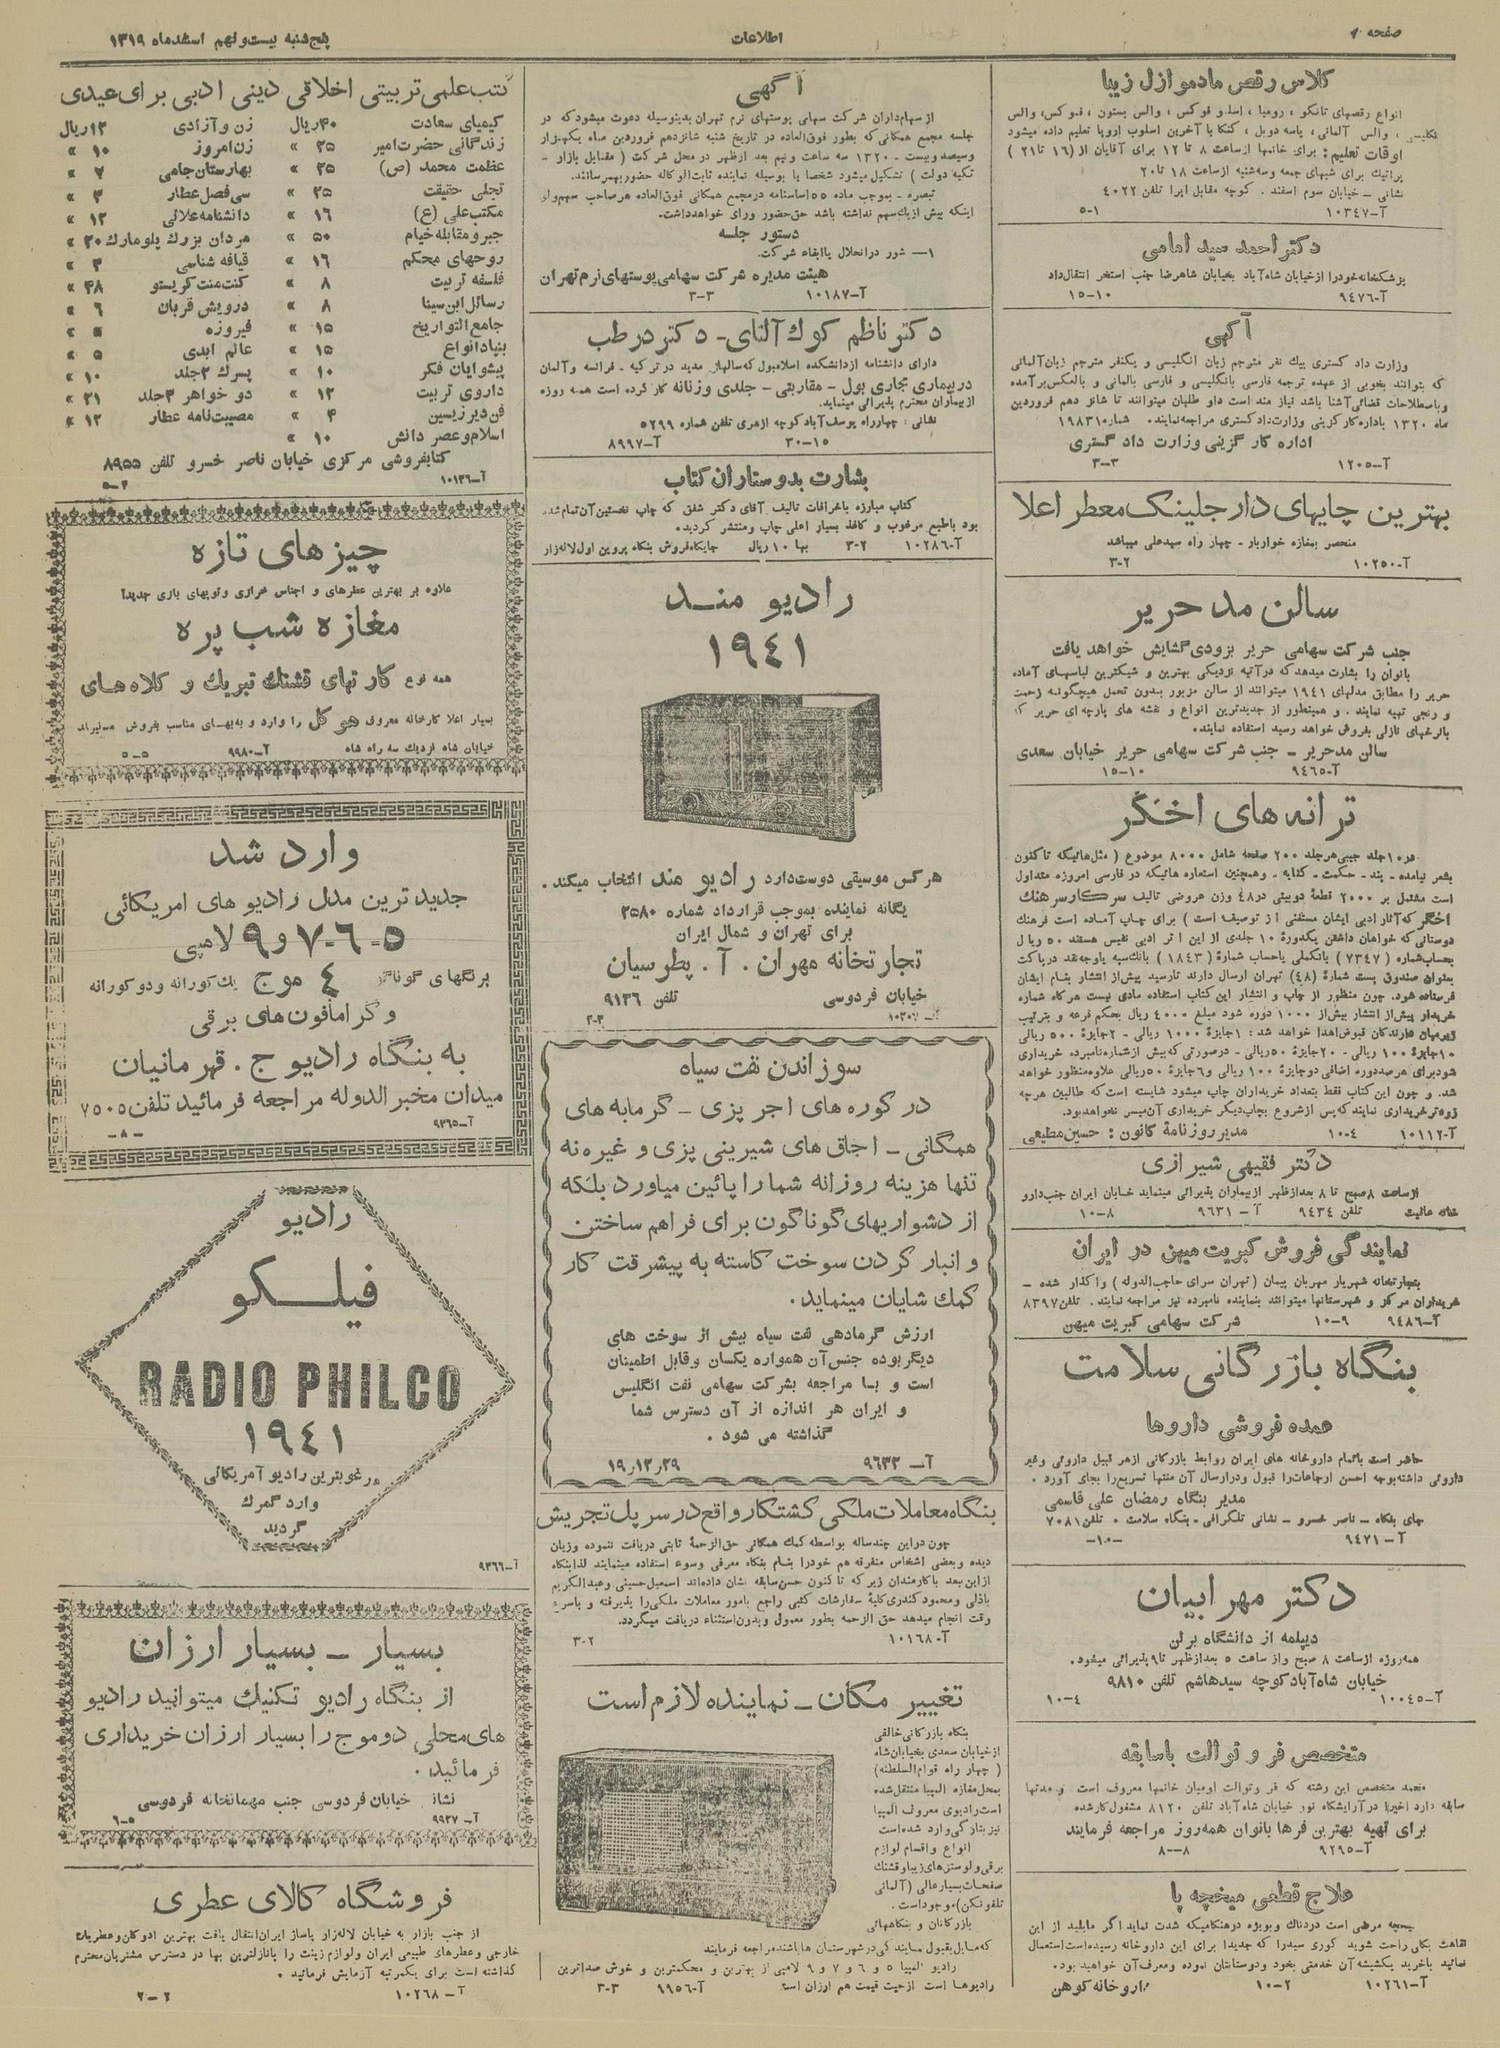 صفحه ۸
اطلاعات
پنج‌شنبه بیست و نهم اسفند ماه ۱۳۱۹
کلاس رقص مادموازل زیبا
انواع رقصهای تانگو ، رومبا ، اسلو فوکس ، والس بستون ، فوکس، والس
انگلیسی ، والس آلمانی ، پاسه دوبل ، کنگا با آخرین اسلوب اروپا تعلیم داده میشود
اوقات تعلیم : برای خانمها از ساعت ۸ تا ۱۲ برای آقایان از (۱۶ تا ۲۱ )
پراتیک برای شبهای جمعه و سه‌شنبه از ساعت ۱۸ تا ۲۰
نشانی - خیابان سوم اسفند . کوچه مقابل اپرا تلفن ۴۰۲۲
آ-۱۰۳۴۷ ۱-۵
دکتر احمد سید امامی
پزشکخانه خود را از خیابان شاه‌آباد بخیابان شاهرضا جنب استخر انتقال داد
آ-۹۴۷۶ ۱۰-۱۵
آگهی
وزارت داد گستری بیک نفر مترجم زبان انگلیسی و یکنفر مترجم زبان آلمانی
که بتوانند بخوبی از عهده ترجمه فارسی بانگلیسی و فارسی بالمانی و بالعکس برآمده
و باصطلاحات قضائی آشنا باشد نیاز مند است داو طلبان میتوانند تا شانز دهم فروردین
ماه ۱۳۲۰ باداره کار گزینی وزارت داد گستری مراجعه نمایند. شماره ۱۹۸۳۱
اداره کار گزینی وزارت داد گستری
آ-۱۲۰۵ ۳-۳
بهترین چایهای دارجلینک معطر اعلا
منحصر بمغازه خواربار - چهار راه سیدعلی میباشد
آ-۱۰۲۵۰ ۲-۳
سالن مد حریر
جنب شرکت سهامی حریر بزودی گشایش خواهد یافت
بانوان را بشارت میدهد که در آتیه نزدیکی بهترین و شیکترین لباسهای آماده
حریر را مطابق مدلهای ۱۹۴۱ میتوانند از سالن مزبور بدون تحمل هیچگونه زحمت
و رنجی تهیه نمایند . و همینطور از جدیدترین انواع و نقشه های پارچه ای حریر که
بالرخهای نازلی بفروش خواهد رسید استفاده نمایند.
سالن مد حریر - جنب شرکت سهامی حریر خیابان سعدی
آ-۹۴۶۵ ۱۰-۱۵
ترانه های اخگر
در ۱۰ جلد جیبی هر جلد ۲۰۰ صفحه شامل ۸۰۰۰ موضوع ( مثل هائیکه تا کنون
بشعر نیامده - پند - حکمت - کنایه - وهمچنین استعاره هائیکه در فارسی امروزه متداول
است مشتمل بر ۲۰۰۰ قطعهٔ دوبیتی در ۴۸ وزن عروضی تالیف سرکار سرهنگ
اخگر که آثار ادبی ایشان مستغنی از توصیف است ) برای چاپ آماده است فرهنگ
دوستانی که خواهان داشتن یکدورهٔ ۱۰ جلدی از این اثر ادبی نفیس هستند ۵۰ ریال
بحساب شماره ( ۷۳۴۷ ) بانکملی یا حساب شمارهٔ ( ۱۸۴۳ ) بانک سپه یا وجه نقد دریافت
بعنوان صندوق پست شمارهٔ (۴۸) تهران ارسال دارند تا رسید پیش از انتشار بنام ایشان
فرستاده شود. چون منظور از چاپ و انتشار این کتاب استفاده مادی نیست هر گاه شماره
خریدار پیش از انتشار بیش از ۱۰۰۰ دوره شود مبلغ ۴۰۰۰ ریال بحکم قرعه و بترتیب
زیر میان دارندگان قبوض اهدا خواهد شد : ۱ جایزهٔ ۱۰۰۰ ریالی - ۲ جایزهٔ ۵۰۰ ریالی
۱۰ جایزهٔ ۱۰۰ ریالی - ۲۰ جایزهٔ ۵۰ ریالی - در صورتی که بیش از شماره نامبرده خریداری
شود برای هر صد دوره اضافی دو جایزهٔ ۱۰۰ ریالی و ۶ جایزهٔ ۵۰ ریالی علاوه منظور خواهد
شد. و چون این کتاب فقط بتعداد خریداران چاپ میشود شایسته است که طالبین هر چه
زودتر خریداری نمایند که پس از شروع بچاپ دیگر خریداری آن میسر نخواهد بود.
آ-۱۰۱۱۲ ۴-۱۰ مدیر روزنامهٔ کانون : حسین مطیعی
دکتر فقیهی شیرازی
از ساعت ۸ صبح تا ۸ بعد از ظهر از بیماران پذیرائی مینماید خیابان ایران جنب دارو
خانه عالیت تلفن ۹۴۳۴ آ - ۹۶۳۱ ۸-۱۰
نمایندگی فروش کبریت میهن در ایران
بتجارتخانه شهریار مهربان پیمان ( تهران سرای حاجب‌الدوله ) واگذار شده -
خریداران مرکز و شهرستانها میتوانند بنماینده نامبرده نیز مراجعه نمایند . تلفن ۸۳۹۷
آ-۹۴۸۶ ۹-۱۰ شرکت سهامی کبریت میهن
بنگاه بازرگانی سلامت
عمده فروشی داروها
حاضر است باتمام داروخانه های ایران روابط بازرگانی از هر قبیل داروئی و غیر
داروئی داشته بوجه احسن ارجاعات را قبول و در ارسال آن منتها تسریع را بجای آورد .
مدیر بنگاه رمضان علی قاسمی
جای بنگاه - ناصر خسرو - نشانی تلگرافی - بنگاه سلامت . تلفن ۷۰۸۱
آ-۹۴۷۱ -۱۰-
دکتر مهرابیان
دیپلمه از دانشگاه برلن
همه‌روزه از ساعت ۸ صبح و از ساعت ۵ بعد از ظهر تا ۹ پذیرائی میشود.
خیابان شاه‌آباد کوچه سیدهاشم تلفن ۹۸۱۰
آ-۱۰۰۴۵ ۴-۱۰
متخصص فر و توالت باسابقه
محمد متخصص این رشته که فر و توالت او میان خانمها معروف است و مدتها
سابقه دارد اخیرا در آرایشگاه نور خیابان شاه‌آباد تلفن ۸۱۲۰ مشغول کار شده
برای تهیه بهترین فرها بانوان همه‌روز مراجعه فرمایند
آ-۹۲۹۵ ۸--۸
علاج قطعی میخچه پا
میخچه مرضی است دردناک و بویژه در هنگامیکه شدت نماید اگر مایلید از این
نقاهت بکلی راحت شوید کوری سیدرا که جدیدا برای این داروخانه رسیده است استعمال
نمائید با خرید یکشیشه آن خدمتی بخود و دوستانتان نموده و معرف آن خواهید بود.
آ-۱۰۲۶۱ ۲-۱۰ داروخانه کوهن
آگهی
از سهامداران شرکت سهامی پوستهای نرم تهران بدینوسیله دعوت میشود که در
جلسه مجمع همگانی که بطور فوق‌العاده در تاریخ شنبه شانزدهم فروردین ماه یکهزار
و سیصد و بیست - ۱۳۲۰ سه ساعت و نیم بعد از ظهر در محل شرکت ( مقابل بازار -
تکیه دولت ) تشکیل میشود شخصا یا بوسیله نماینده ثابت‌الوکاله حضور بهمرسانند.
تبصره - بموجب ماده ۵۵ اساسنامه در مجمع همگانی فوق‌العاده هر صاحب سهم ولو
اینکه بیش از یک سهم نداشته باشد حق حضور و رای خواهد داشت.
دستور جلسه
۱- شور در انحلال یا ابقاء شرکت.
هیئت مدیره شرکت سهامی پوستهای نرم تهران
آ-۱۰۱۸۷ ۳-۳
دکتر ناظم کوک آلتای - دکتر در طب
دارای دانشنامه از دانشکده اسلامبول که سالهای مدید در ترکیه - فرانسه و آلمان
در بیماری مجاری بول - مقاربتی - جلدی و زنانه کار کرده است همه روزه
از بیماران محترم پذیرائی مینماید.
نشانی : چهار راه یوسف آباد کوچه از هری تلفن شماره ۵۲۹۹
۱۵-۳۰ آ-۸۹۹۷
بشارت بدوستاران کتاب
کتاب مبارزه با خرافات تالیف آقای دکتر شفق که چاپ نخستین آن تمام شده
بود باطبع مرغوب و کاغذ بسیار اعلی چاپ و منتشر گردید.
آ-۱۰۲۸۶ ۲-۳ بها ۱۰ ریال جایگاه فروش بنگاه پروین اول لاله‌زار
رادیو مند
۱۹۴۱
هر کس موسیقی دوست دارد رادیو مند انتخاب میکند .
یگانه نماینده بموجب قرارداد شماره ۲۵۸۰
برای تهران و شمال ایران
تجارتخانه مهران . آ . پطرسیان
خیابان فردوسی تلفن ۹۱۳۶
آ-۱۰۲۰۷ ۲-۳
سوزاندن نفت سیاه
در کوره های اجر پزی - گرمابه های
همگانی - اجاق های شیرینی پزی و غیره نه
تنها هزینه روزانه شما را پائین میاورد بلکه
از دشواریهای گوناگون برای فراهم ساختن
و انبار کردن سوخت کاسته به پیشرفت کار
کمک شایان مینماید.
ارزش گرمادهی نفت سیاه بیش از سوخت های
دیگر بوده جنس آن همواره یکسان و قابل اطمینان
است و بسا مراجعه بشرکت سهامی نفت انگلیس
و ایران هر اندازه از آن دسترس شما
گذاشته می شود .
آ-۹۶۳۲ ۱۹ر۱۲ر۲۹
بنگاه معاملات ملکی کشتکار واقع در سر پل تجریش
چون در این چند ساله بواسطه کمک همگانی حق‌الزحمهٔ ثابتی دریافت ننموده و زیان
دیده و بعضی اشخاص متفرقه هم خود را بنام بنگاه معرفی و سوء استفاده مینمایند لذا بنگاه
از این ببعد با کارمندان زیر که تا کنون حسن سابقه نشان داده‌اند اسمعیل حسینی و عبدالکریم
باذلی و محمود کندری کلیهٔ سفارشات کتبی راجع بامور معاملات ملکی را پذیرفته و باسرع
وقت انجام میدهد حق الزحمه بطور معمول و بدون استثناء دریافت میگردد.
آ-۱۰۱۶۸ ۲-۳
تغییر مکان - نماینده لازم است
بنگاه بازرگانی خالقی
از خیابان سعدی بخیابان شاه
( چهار راه قوام السلطنه)
بمحل مغازه المپیا منتقل شده
است رادیوی معروف المپیا
نیز بتازگی وارد شده است
انواع و اقسام لوازم
برقی و لوسترهای زیبا و قشنگ
صفحات بسیار عالی (آلمانی
تلفونکن) موجود است.
بازرگانان و بنگاههائی
که مایل بقبول نمایندگی در شهرستان ها باشند مراجعه فرمایند
رادیو المپیا ۵ و ۶ و ۷ و ۹ لامپی از بهترین و محکمترین و خوش صداترین
رادیوها است از حیث قیمت هم ارزان است آ-۹۹۵۶ ۳-۳
کتب علمی تربیتی اخلاقی دینی ادبی برای عیدی
کیمیای سعادت ۴۰ ریال زن و آزادی ۱۲ ریال
زندگانی حضرت امیر ۲۵ » زن امروز ۱۰ »
عظمت محمد (ص) ۲۵ » بهارستان جامی ۷ »
تجلی حقیقت ۲۵ » سی فصل عطار ۳ »
مکتب علی (ع) ۱۶ » دانشنامه علائی ۱۲ »
جبر و مقابله خیام ۵۰ » مردان بزرگ پلومارک ۲۰ »
روحهای محکم ۱۶ » قیافه شناسی ۴ »
فلسفه تربیت ۸ » کنت منت کریستو ۴۸ »
رسائل ابن سینا ۸ » درویش قربان ۶ »
جامع التواریخ ۱۵ » فیروزه ۵ »
بنیاد انواع ۱۵ » عالم ابدی ۵ »
پیشوایان فکر ۱۰ » پسرک ۲ جلد ۱۰ »
داروی تربیت ۱۲ » دو خواهر ۳ جلد ۲۱ »
فن دبریسین ۴ » مصیبت نامه عطار ۱۲ »
اسلام و عصر دانش ۱۰ »
کتابفروشی مرکزی خیابان ناصر خسرو تلفن ۸۹۵۵
آ-۱۰۱۳۶ ۴-۵
چیز های تازه
علاوه بر بهترین عطرهای و اجناس خرازی و توپهای بازی جدیداً
مغازه شب پره
همه نوع کارتهای قشنگ تبریک و کلاه های
بسیار اعلا کارخانه معروف هوکل را وارد و به بهای مناسب بفروش میرساند
خیابان شاه نزدیک سه راه شاه آ-۹۹۸۰ ۵-۵
وارد شد
جدید ترین مدل رادیو های امریکائی
۵-۶-۷ و ۹ لامپی
برنگهای گوناگون ۴ موج یک کورانه و دو کورانه
و گرامافون‌های برقی
به بنگاه رادیو ج . قهرمانیان
میدان مخبر الدوله مراجعه فرمائید تلفن ۷۵۰۵
آ-۹۳۶۵ -۸-
رادیو
فیلکو
RADIO PHILCO
۱۹۴۱
مرغوبترین رادیو آمریکائی
وارد گمرک
گردید
آ-۹۳۶۶
بسیار - بسیار ارزان
از بنگاه رادیو تکنیک میتوانید رادیو
های محلی دو موج را بسیار ارزان خریداری
فرمائید .
نشانی خیابان فردوسی جنب مهمانخانه فردوسی
آ-۹۹۳۷ ۵-۶
فروشگاه کالای عطری
از جنب بازار به خیابان لاله‌زار پاساژ ایران انتقال یافت بهترین ادوکلن و عطریات
خارجی و عطرهای طبیعی ایران و لوازم زینت را با نازلترین بها در دسترس مشتریان محترم
گذاشته است برای یکمرتبه آزمایش فرمائید .
آ-۱۰۲۶۸ ۲-۲